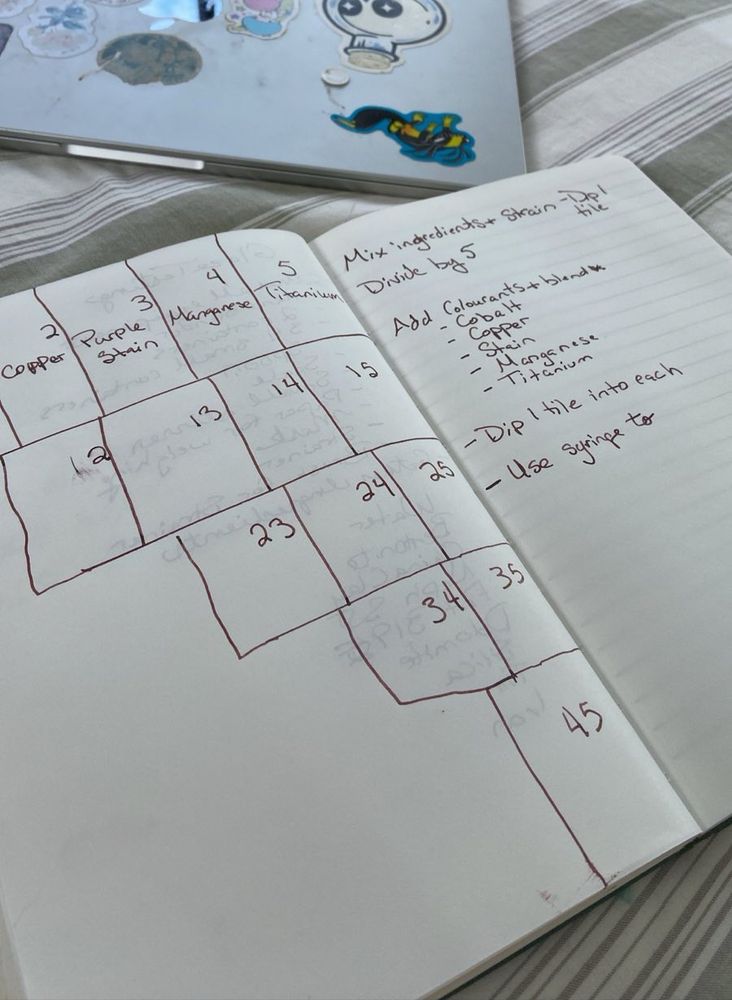 2
Copper
3
Purple
Stain
4
Manganese
5
Titanium
12
13
14
15
23
24
25
34
35
45
Mix ingredients + strain - Dip 1
tile
Divide by 5
Add Colourants + blend
- Cobalt
- Copper
- Stain
- Manganese
- Titanium
- Dip 1 tile into each
- Use syringe to